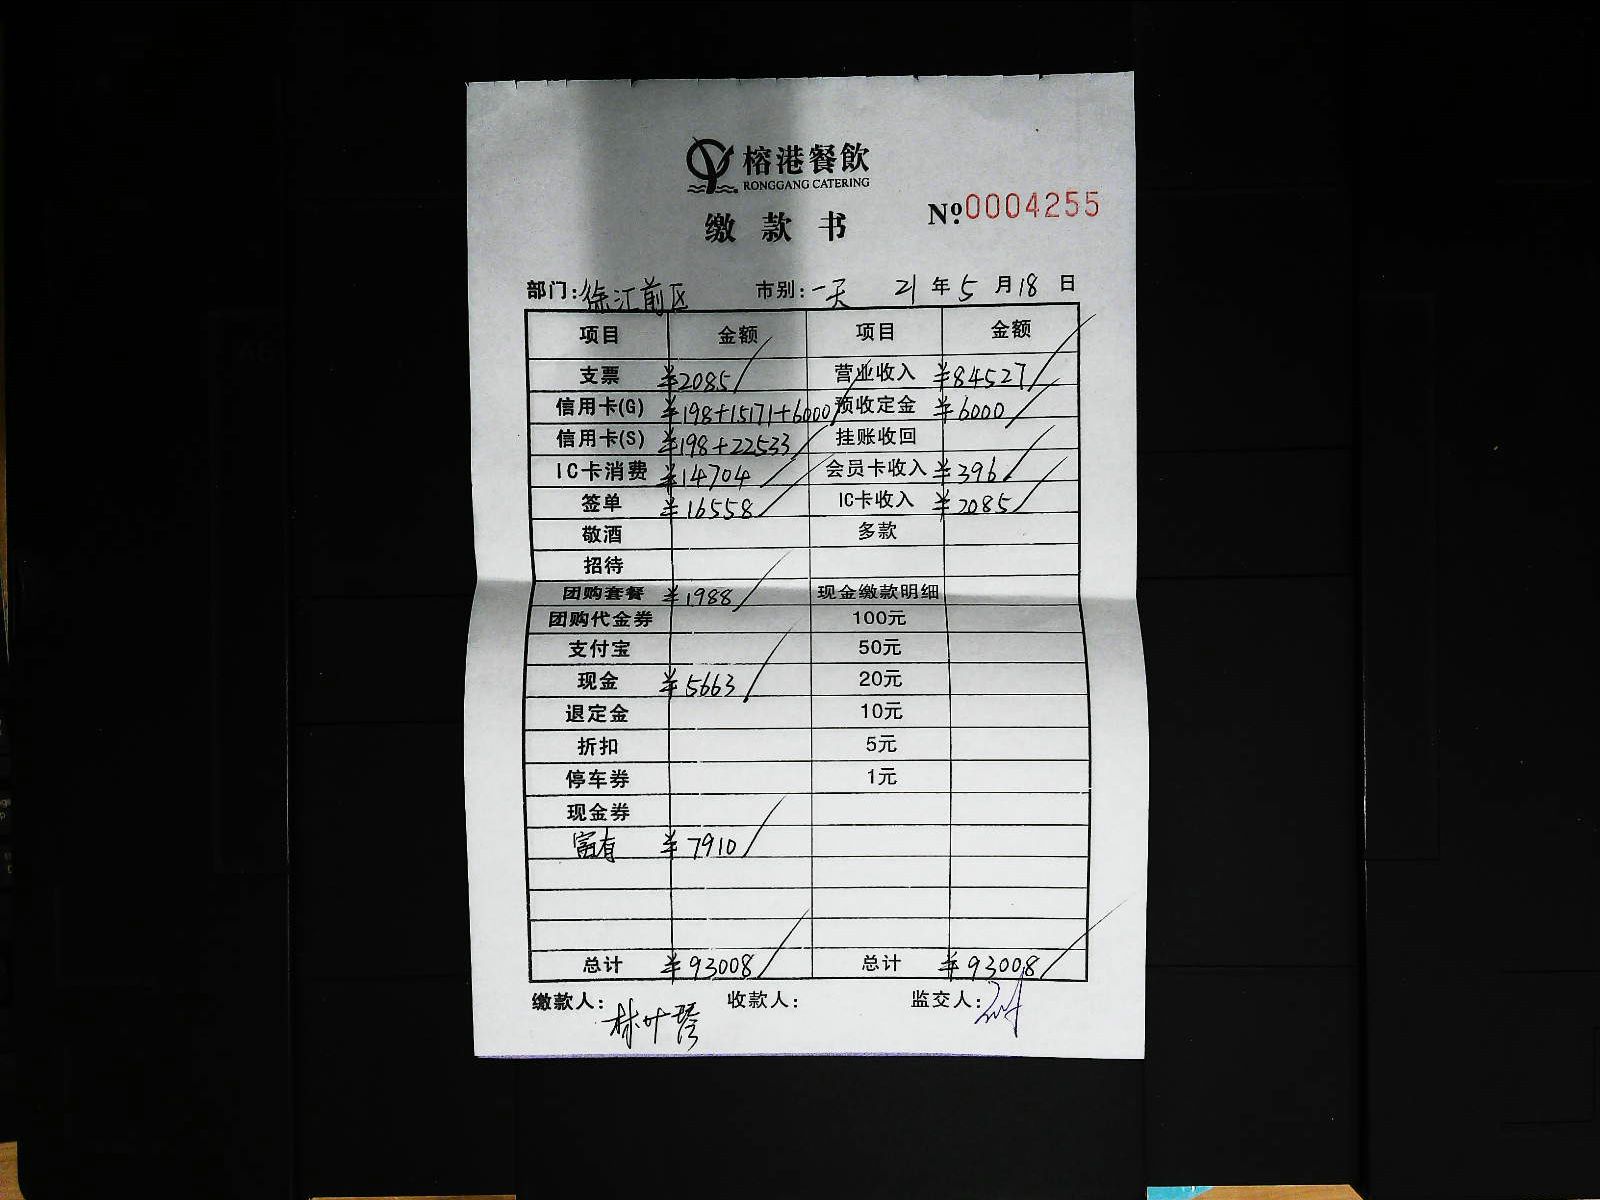 榕港餐飲
RONGGANG CATERING
缴款书 №0004255
部门:徐江前区 市别:一天 21年5月18日
项目 金额 项目 金额
支票 ¥2085 营业收入 ¥84527
信用卡(G) ¥198+15171+6000 预收定金 ¥6000
信用卡(S) ¥198+22533 挂账收回
IC卡消费 ¥14704 会员卡收入 ¥396
签单 ¥16558 IC卡收入 ¥2085
敬酒 多款
招待
团购套餐 ¥1988 现金缴款明细
团购代金券 100元
支付宝 50元
现金 ¥5663 20元
退定金 10元
折扣 5元
停车券 1元
现金券
富有 ¥7910
总计 ¥93008 总计 ¥93008
缴款人:林叶琴 收款人: 监交人: